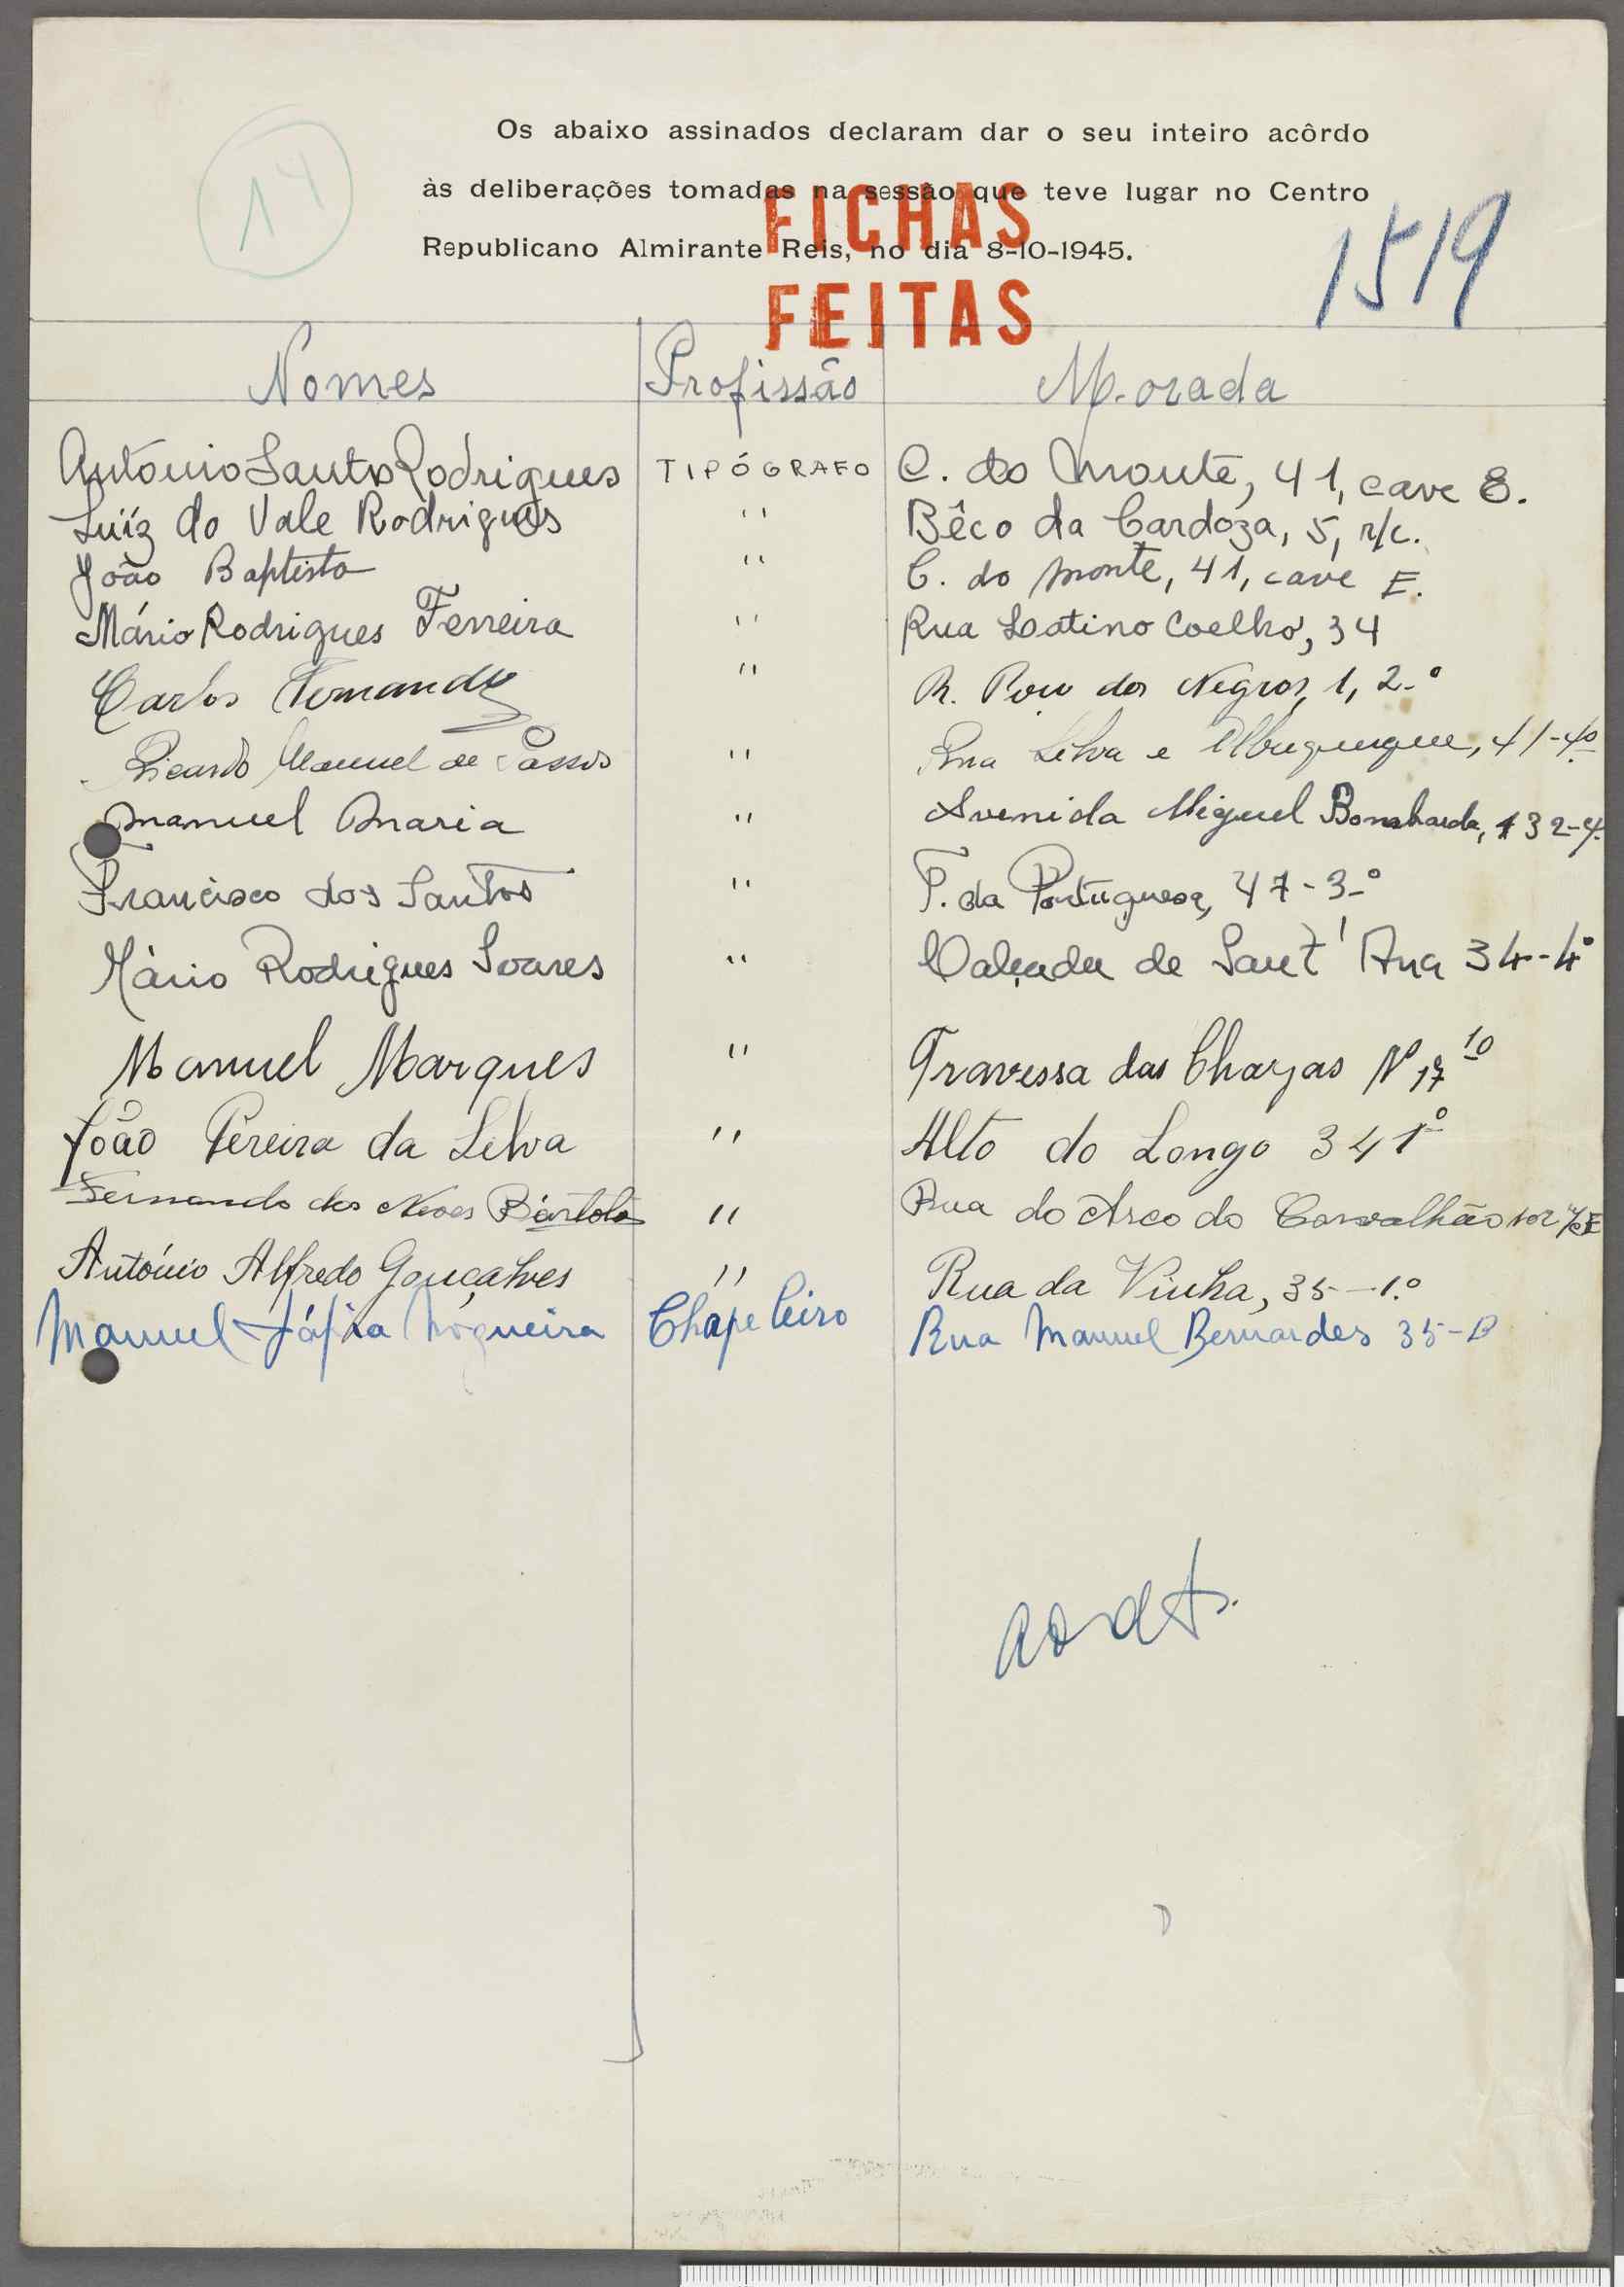 14
Os abaixo assinados declaram dar o seu inteiro acôrdo
às deliberações tomadas na sessão que teve lugar no Centro
Republicano Almirante Reis, no dia 8-10-1945.
FICHAS
FEITAS
1519
Nomes Profissão Morada
António Santos Rodrigues TIPÓGRAFO C. do Monte, 41, cave E.
Luíz do Vale Rodrigues " Bêco da Cardoza, 5, r/c.
João Baptista " C. do Monte, 41, cave E.
Mário Rodrigues Ferreira " Rua Latino Coelho, 34
Carlos Fernandes " R. Poço dos Negros, 1, 2.º
Ricardo Manuel de Passos " Rua Silva e Albuquerque, 41-4º
Manuel Maria " Avenida Miguel Bombarda, 132-4.
Francisco dos Santos " T. da Portuguesa, 47-3.º
Mário Rodrigues Soares " Calçada de Sant' Ana 34-4º
Manuel Marques " Travessa das Chagas Nº 17 1º
João Pereira da Silva " Alto do Longo 34 1º
Fernando das Neves Bártolo " Rua do Arco do Carvalhão 102 r/c E
António Alfredo Gonçalves " Rua da Vinha, 35-1.º
Manuel Nogueira Chapeleiro Rua Manuel Bernardes 35-